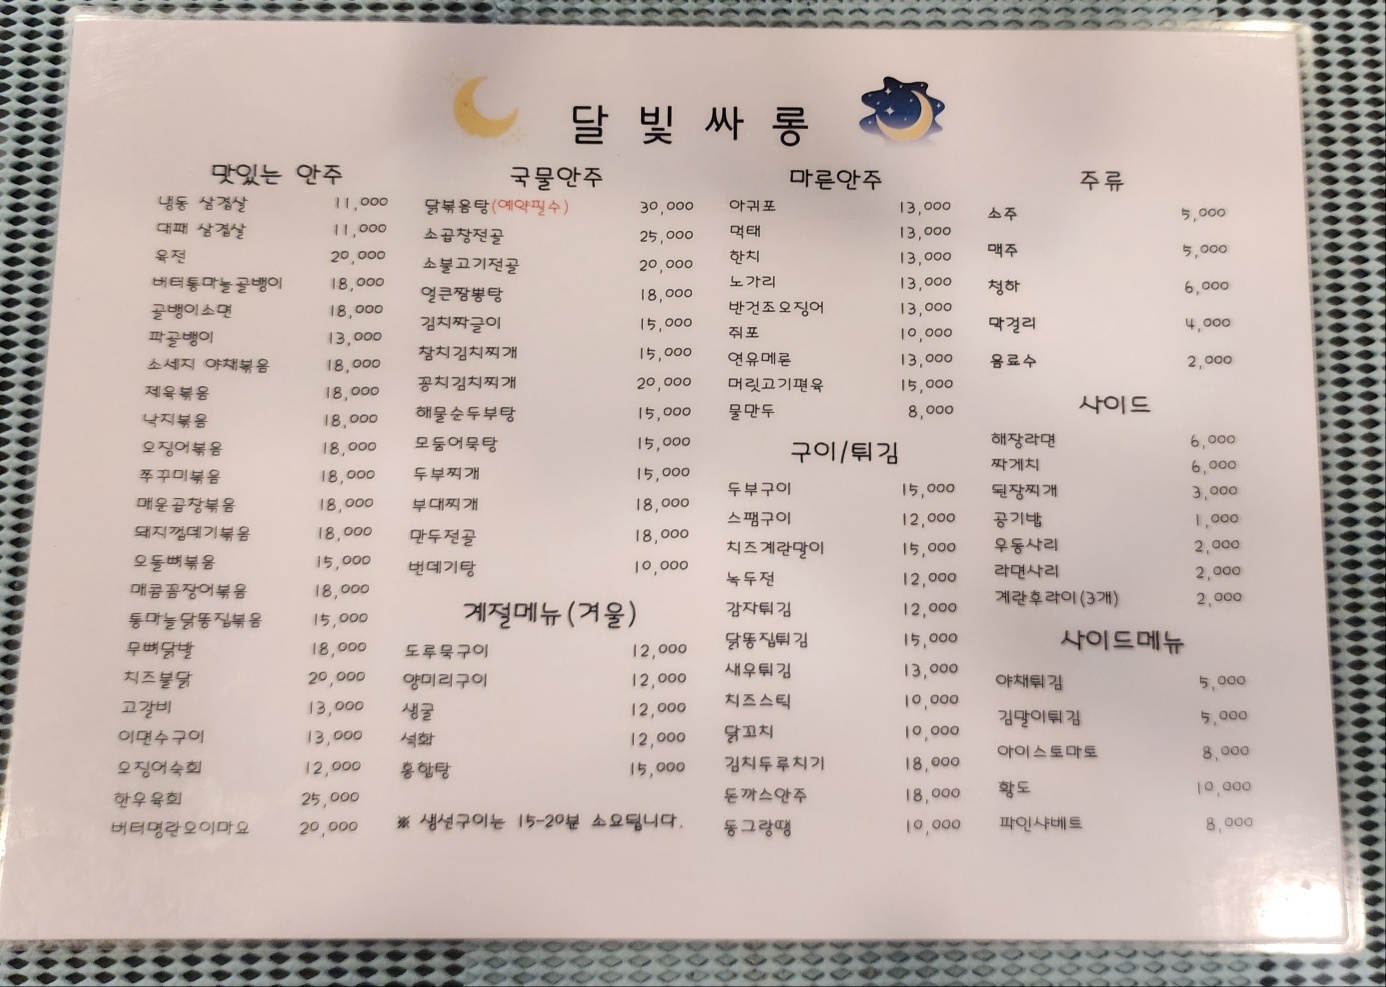 달빛싸롱
맛있는 안주
냉동 삼겹살 11,000
대패 삼겹살 11,000
육전 20,000
버터통마늘골뱅이 18,000
골뱅이소면 18,000
파골뱅이 13,000
소세지 야채볶음 18,000
제육볶음 18,000
낙지볶음 18,000
오징어볶음 18,000
쭈꾸미볶음 18,000
매운곱창볶음 18,000
돼지껍데기볶음 18,000
오돌뼈볶음 15,000
매콤꼼장어볶음 18,000
통마늘닭똥집볶음 15,000
무뼈닭발 18,000
치즈불닭 20,000
고갈비 13,000
이면수구이 13,000
오징어숙회 12,000
한우육회 25,000
버터명란오이마요 20,000
국물안주
닭볶음탕(예약필수) 30,000
소곱창전골 25,000
소불고기전골 20,000
얼큰짬뽕탕 18,000
김치짜글이 15,000
참치김치찌개 15,000
꽁치김치찌개 20,000
해물순두부탕 15,000
모둠어묵탕 15,000
두부찌개 15,000
부대찌개 18,000
만두전골 18,000
번데기탕 10,000
계절메뉴(겨울)
도루묵구이 12,000
양미리구이 12,000
생굴 12,000
석화 12,000
홍합탕 15,000
※ 생선구이는 15-20분 소요됩니다.
마른안주
아귀포 13,000
먹태 13,000
한치 13,000
노가리 13,000
반건조오징어 13,000
쥐포 10,000
연유메론 13,000
머릿고기편육 15,000
물만두 8,000
구이/튀김
두부구이 15,000
스팸구이 12,000
치즈계란말이 15,000
녹두전 12,000
감자튀김 12,000
닭똥집튀김 15,000
새우튀김 13,000
치즈스틱 10,000
닭꼬치 10,000
김치두루치기 18,000
돈까스안주 18,000
동그랑땡 10,000
주류
소주 5,000
맥주 5,000
청하 6,000
막걸리 4,000
음료수 2,000
사이드
해장라면 6,000
짜게치 6,000
된장찌개 3,000
공기밥 1,000
우동사리 2,000
라면사리 2,000
계란후라이(3개) 2,000
사이드메뉴
야채튀김 5,000
김말이튀김 5,000
아이스토마토 8,000
황도 10,000
파인샤베트 8,000